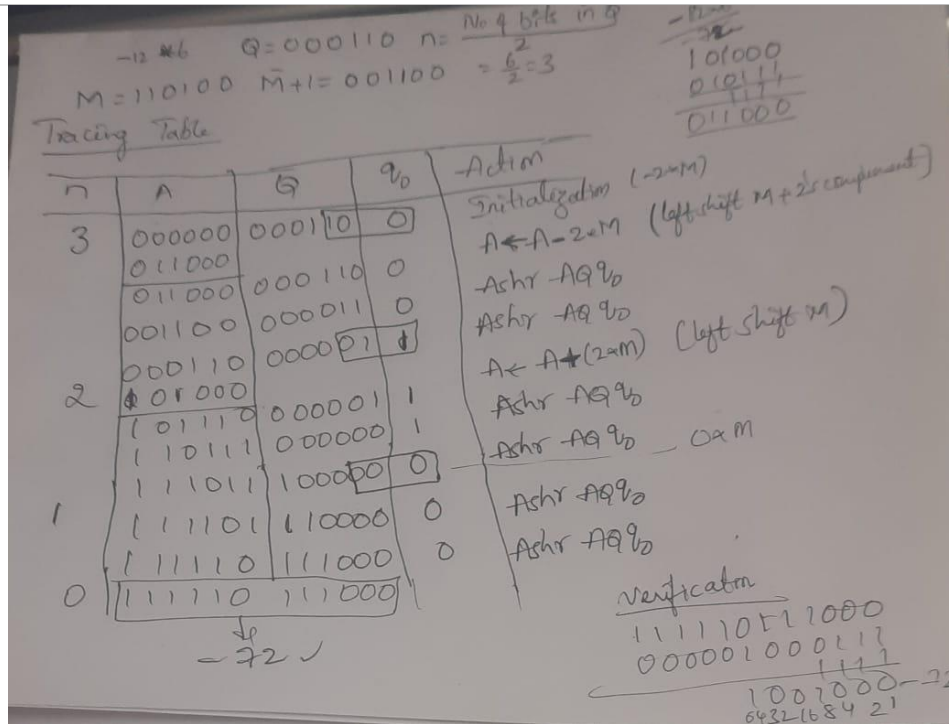 -12 * 6 Q = 000110 n = No of bits in Q / 2
= 6/2 = 3
M = 110100 M̄+1 = 001100
101000
010111
1111
011000
Tracing Table
n A Q q0 Action
3 000000 000110 0 Initialization (-2*M)
011000 A ← A - 2*M (left shift M + 2's compument)
011000 000110 0 Ashr AQ q0
001100 000011 0 Ashr AQ q0
000110 000001 1
2 101000 A ← A + (2*M) (left shift M)
101110 000001 1 Ashr AQ q0
110111 000000 1 Ashr AQ q0
111011 100000 0 0*M
1 111101 110000 0 Ashr AQ q0
111110 111000 0 Ashr AQ q0
0 111110 111000
-72 ✓
Verification
111110111000
000001000111
1111
1001000 -72
64 32 16 8 4 2 1